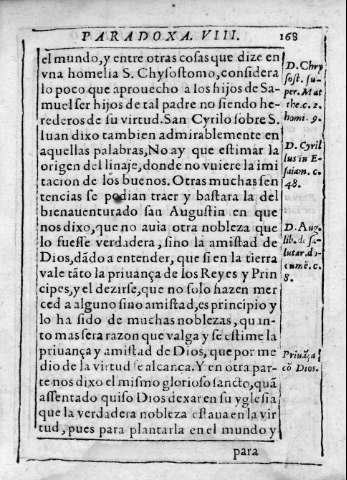 PARADOXA. VIII. 168
el mundo, y entre otras cosas que dize en
vna homelia S. Chysostomo, considera
lo poco que aprouecho a los hijos de Sa-
muel ser hijos de tal padre no siendo he-
rederos de su virtud. San Cyrilo sobre S.
Iuan dixo tambien admirablemente en
aquellas palabras, No ay que estimar la
origen del linaje, donde no vuiere la imi
tacion de los buenos. Otras muchas sen
tencias se podian traer y bastara la del
bienauenturado san Augustin en que
nos dixo, que no auia otra nobleza que
lo fuesse verdadera, sino la amistad de
Dios, dãdo a entender, que si en la tierra
vale tãto la priuança de los Reyes y Prin
cipes, y el dezirse, que no solo hazen mer
ced a alguno sino amistad, es principio y
lo ha sido de muchas noblezas, quãnto
mas sera razon que valga y se estime la
priuança y amistad de Dios, que por me
dio de la virtud se alcanca. Y en otra par-
te nos dixo el mismo glorioso sancto, quã
assentado quiso Dios dexar en su yglesia
que la verdadera nobleza estaua en la vir
tud, pues para plantarla en el mundo y
para
D. Chry
sost. su-
per. Mat
the. c. 2.
homi. 9.
D. Cyril
lus in E-
saiam. c.
48.
D. Aug.
lib. de sa-
lutar. do-
cumē. c.
8.
Priuāça
cō Dios.